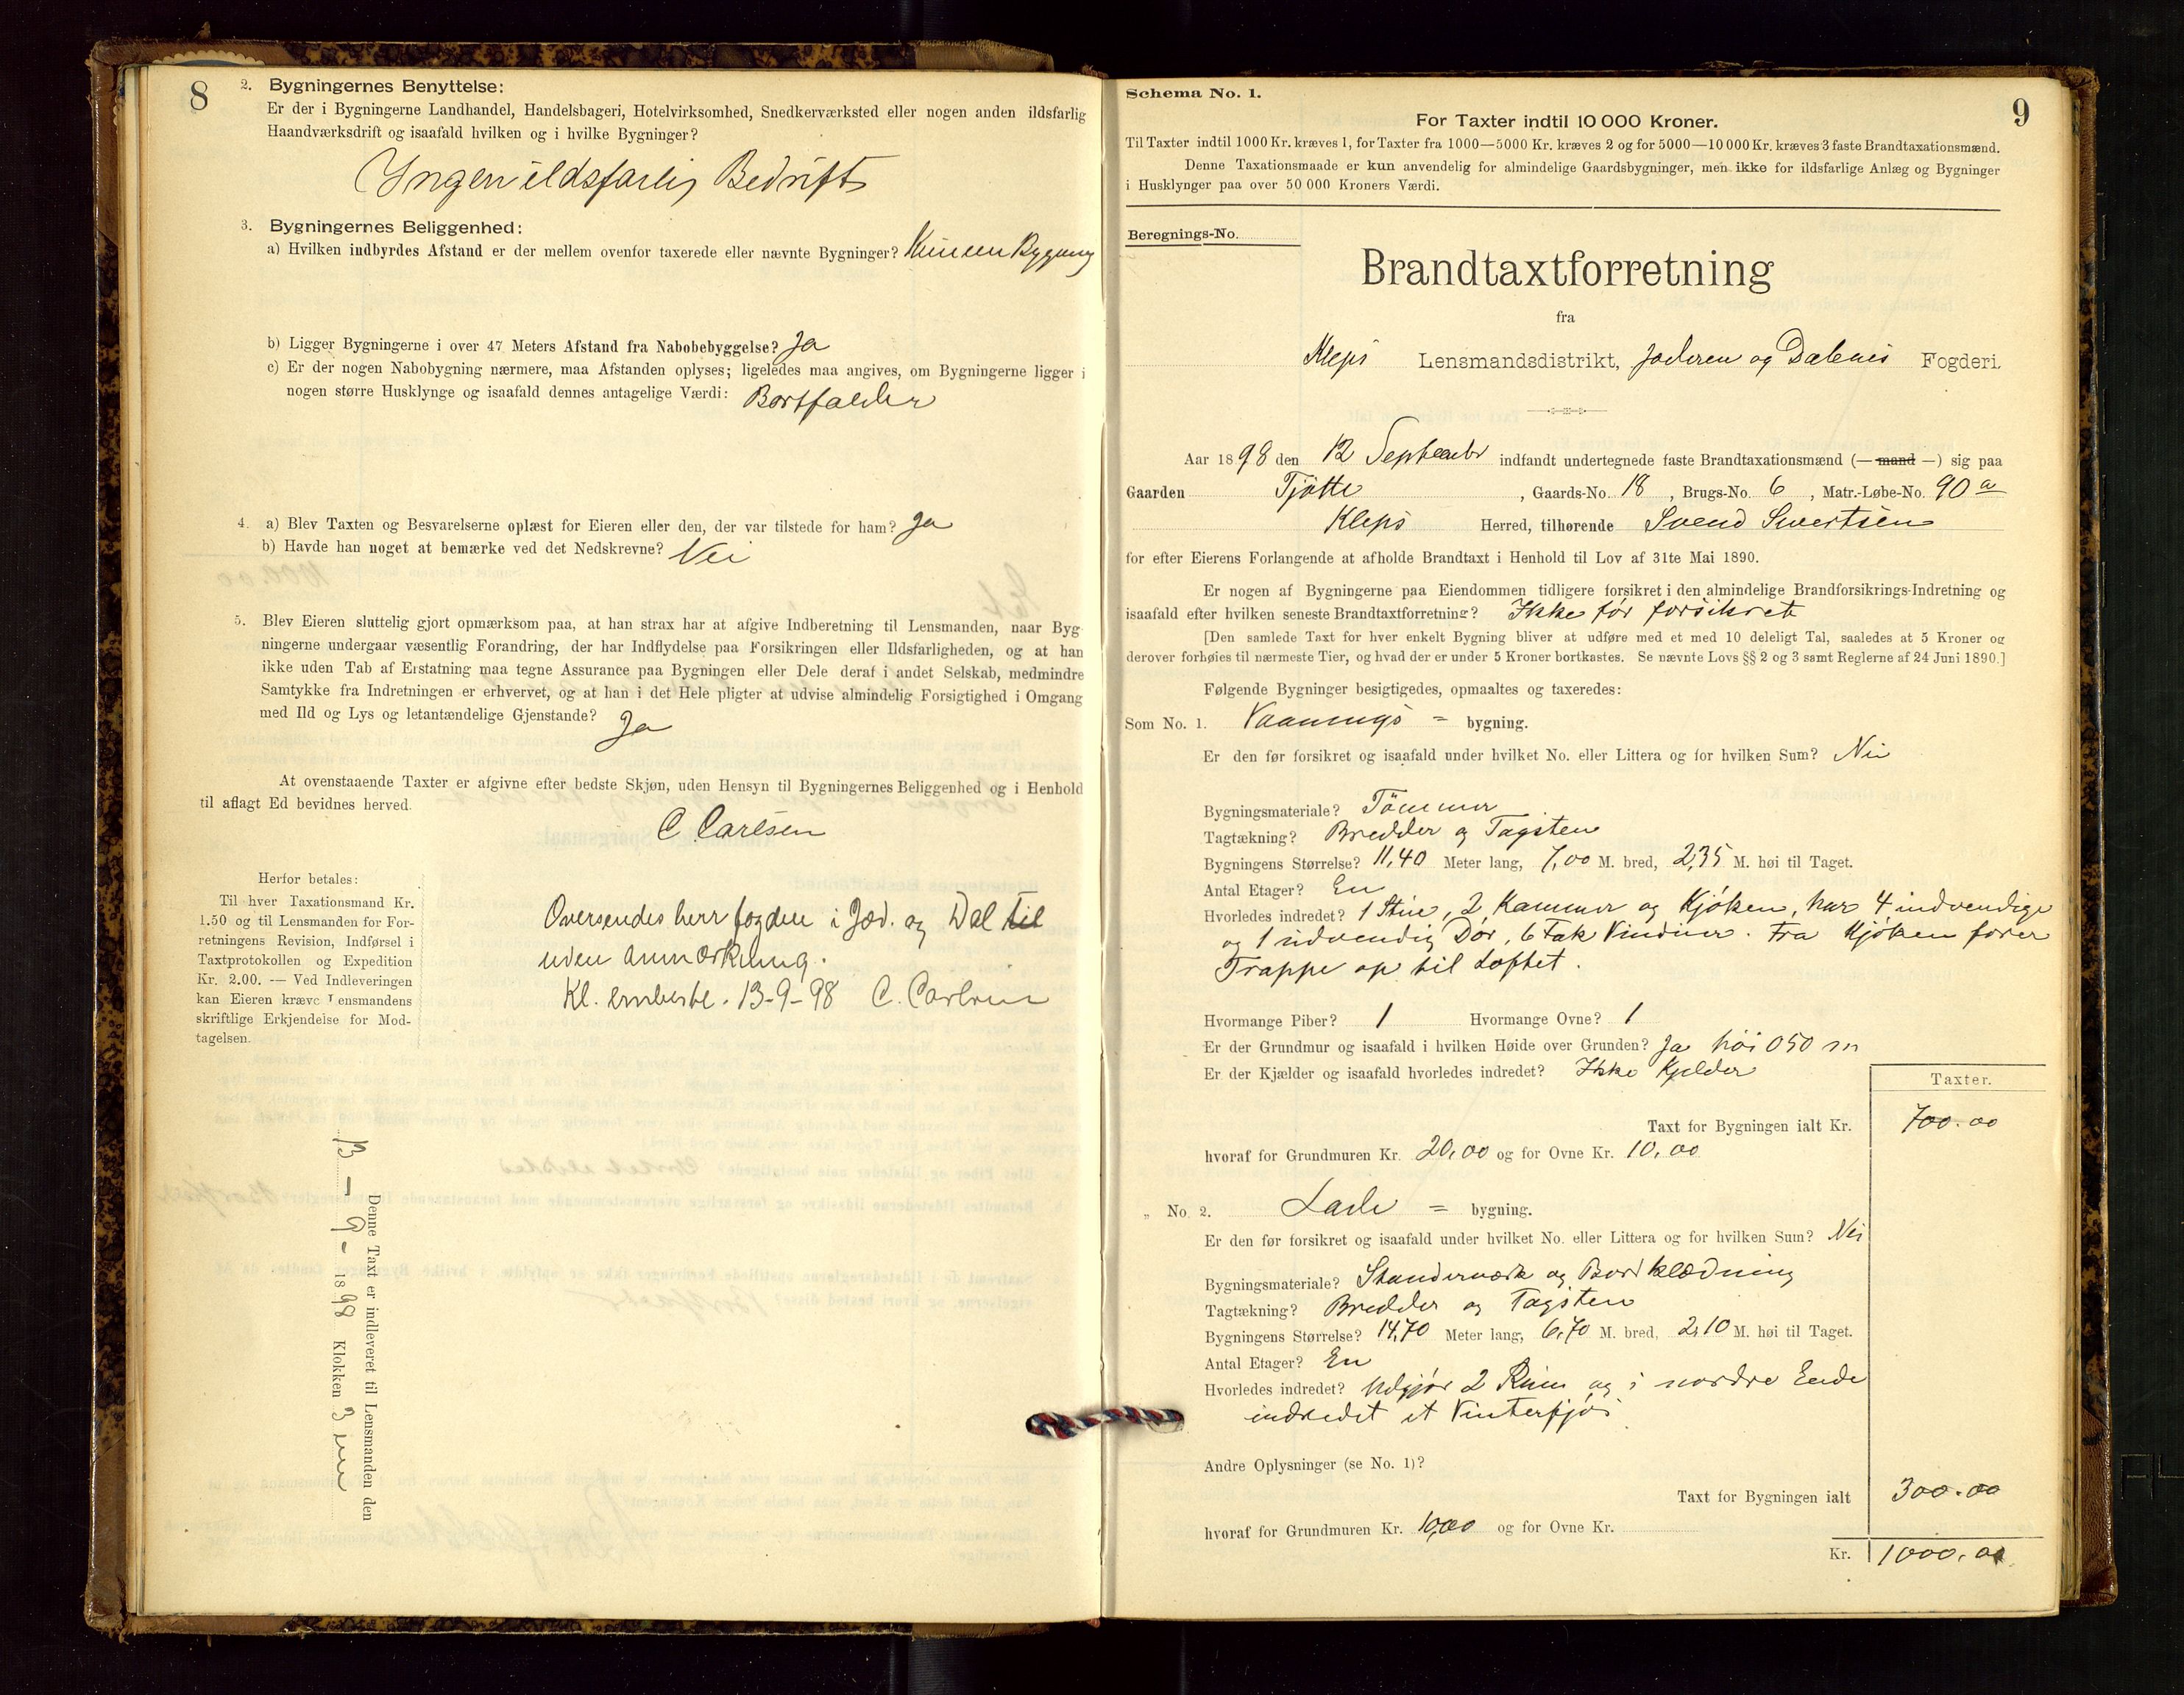 8
2. Bygningernes Benyttelse:
Er der i Bygningerne Landhandel, Handelsbageri, Hotelvirksomhed, Snedkerværksted eller nogen anden ildsfarlig
Haandværksdrift og isaafald hvilken og i hvilke Bygninger?
Yngen ildsfarlig Bedrift
3. Bygningernes Beliggenhed:
a) Hvilken indbyrdes Afstand er der mellem ovenfor taxerede eller nævnte Bygninger? Kun een Bygning
b) Ligger Bygningerne i over 47 Meters Afstand fra Nabobebyggelse? Ja
c) Er der nogen Nabobygning nærmere, maa Afstanden oplyses; ligeledes maa angives, om Bygningerne ligger i
nogen større Husklynge og isaafald dennes antagelige Værdi: Bortfalder
4. a) Blev Taxten og Besvarelserne oplæst for Eieren eller den, der var tilstede for ham? Ja
b) Havde han noget at bemærke ved det Nedskrevne? Nei
5. Blev Eieren sluttelig gjort opmærksom paa, at han strax har at afgive Indberetning til Lensmanden, naar Byg
ningerne undergaar væsentlig Forandring, der har Indflydelse paa Forsikringen eller Ildsfarligheden, og at han
ikke uden Tab af Erstatning maa tegne Assurance paa Bygningen eller Dele deraf i andet Selskab, medmindre
Samtykke fra Indretningen er erhvervet, og at han i det Hele pligter at udvise almindelig Forsigtighed i Omgang
med Ild og Lys og letantændelige Gjenstande? Ja
At ovenstaaende Taxter er afgivne efter bedste Skjøn, uden Hensyn til Bygningernes Beliggenhed og i Henhold
til aflagt Ed bevidnes herved.
C Carlsen
Herfor betales:
Til hver Taxationsmand Kr.
1.50 og til Lensmanden for For-
retningens Revision, Indførsel i
Taxtprotokollen og Expedition
Kr. 2.00. — Ved Indleveringen
kan Eieren kræve Lensmandens
skriftlige Erkjendelse for Mod-
tagelsen.
Oversendes herr fogden i Jæd. og Dal til
uden anmærkning.
Kl. 13-9-98 C. Carlsen
Denne Taxt er indleveret til Lensmanden den
13 - 9 - 1898 Klokken 3
Schema No. 1.
9
For Taxter indtil 10 000 Kroner.
Til Taxter indtil 1000 Kr. kræves 1, for Taxter fra 1000—5000 Kr. kræves 2 og for 5000—10 000 Kr. kræves 3 faste Brandtaxationsmænd.
Denne Taxationsmaade er kun anvendelig for almindelige Gaardsbygninger, men ikke for ildsfarlige Anlæg og Bygninger
i Husklynger paa over 50 000 Kroners Værdi.
Beregnings-No.
Brandtaxtforretning
fra
Kleps Lensmandsdistrikt, Jæderen og Dalenes Fogderi.
Aar 1898 den 12 September indfandt undertegnede faste Brandtaxationsmænd (— mand —) sig paa
Gaarden Tjøtte, Gaards-No. 18, Brugs-No. 6, Matr.-Løbe-No. 90 a
Kleps Herred, tilhørende Svend Sivertsen
for efter Eierens Forlangende at afholde Brandtaxt i Henhold til Lov af 31te Mai 1890.
Er nogen af Bygningerne paa Eiendommen tidligere forsikret i den almindelige Brandforsikrings-Indretning og
isaafald efter hvilken seneste Brandtaxtforretning? Ikke før forsikret
[Den samlede Taxt for hver enkelt Bygning bliver at udføre med et med 10 deleligt Tal, saaledes at 5 Kroner og
derover forhøies til nærmeste Tier, og hvad der er under 5 Kroner bortkastes. Se nævnte Lovs §§ 2 og 3 samt Reglerne af 24 Juni 1890.]
Følgende Bygninger besigtigedes, opmaaltes og taxeredes:
Som No. 1. Vaanings = bygning.
Er den før forsikret og isaafald under hvilket No. eller Littera og for hvilken Sum? Nei
Bygningsmateriale? Tømmer
Tagtækning? Bredder og Tagsten
Bygningens Størrelse? 11,40 Meter lang, 7,00 M. bred, 2,35 M. høi til Taget.
Antal Etager? En
Hvorledes indredet? 1 Stue, 2 Kammer og Kjøken, har 4 indvendige
og 1 udvendig Dør, 6 Fak Vinduer. Fra Kjøken fører
Trappe op til Loftet.
Hvormange Piber? 1 Hvormange Ovne? 1
Er der Grundmur og isaafald i hvilken Høide over Grunden? Ja høi 050 m
Er der Kjælder og isaafald hvorledes indredet? Ikke Kjelder
Taxter.
Taxt for Bygningen ialt Kr. 700.00
hvoraf for Grundmuren Kr. 20,00 og for Ovne Kr. 10,00
„ No 2. Lade = bygning.
Er den før forsikret og isaafald under hvilket No. eller Littera og for hvilken Sum? Nei
Bygningsmateriale? Standerværk og Bordklædning
Tagtækning? Bredder og Tagsten
Bygningens Størrelse? 14,70 Meter lang, 6,70 M. bred, 2,10 M. høi til Taget.
Antal Etager? En
Hvorledes indredet? Udgjør 2 Rum og i nordre Ende
indredet et Vinterfjøs
Andre Oplysninger (se No. 1)?
Taxt for Bygningen ialt 300.00
hvoraf for Grundmuren Kr. 10,00 og for Ovne Kr.
Kr. 1000.00